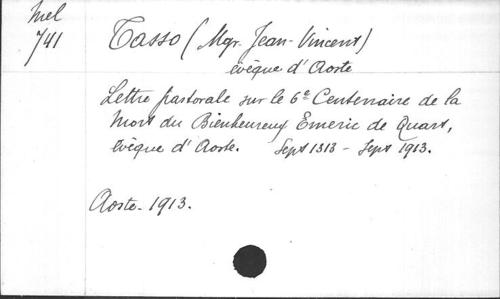 Mel
741
Tasso (Mgr. Jean-Vincent)
évêque d'Aoste
Lettre pastorale sur le 6e Centenaire de la
Mort du Bienheureux Emeric de Quart,
évêque d'Aoste. Sept 1313 - Sept 1913.
Aoste - 1913.